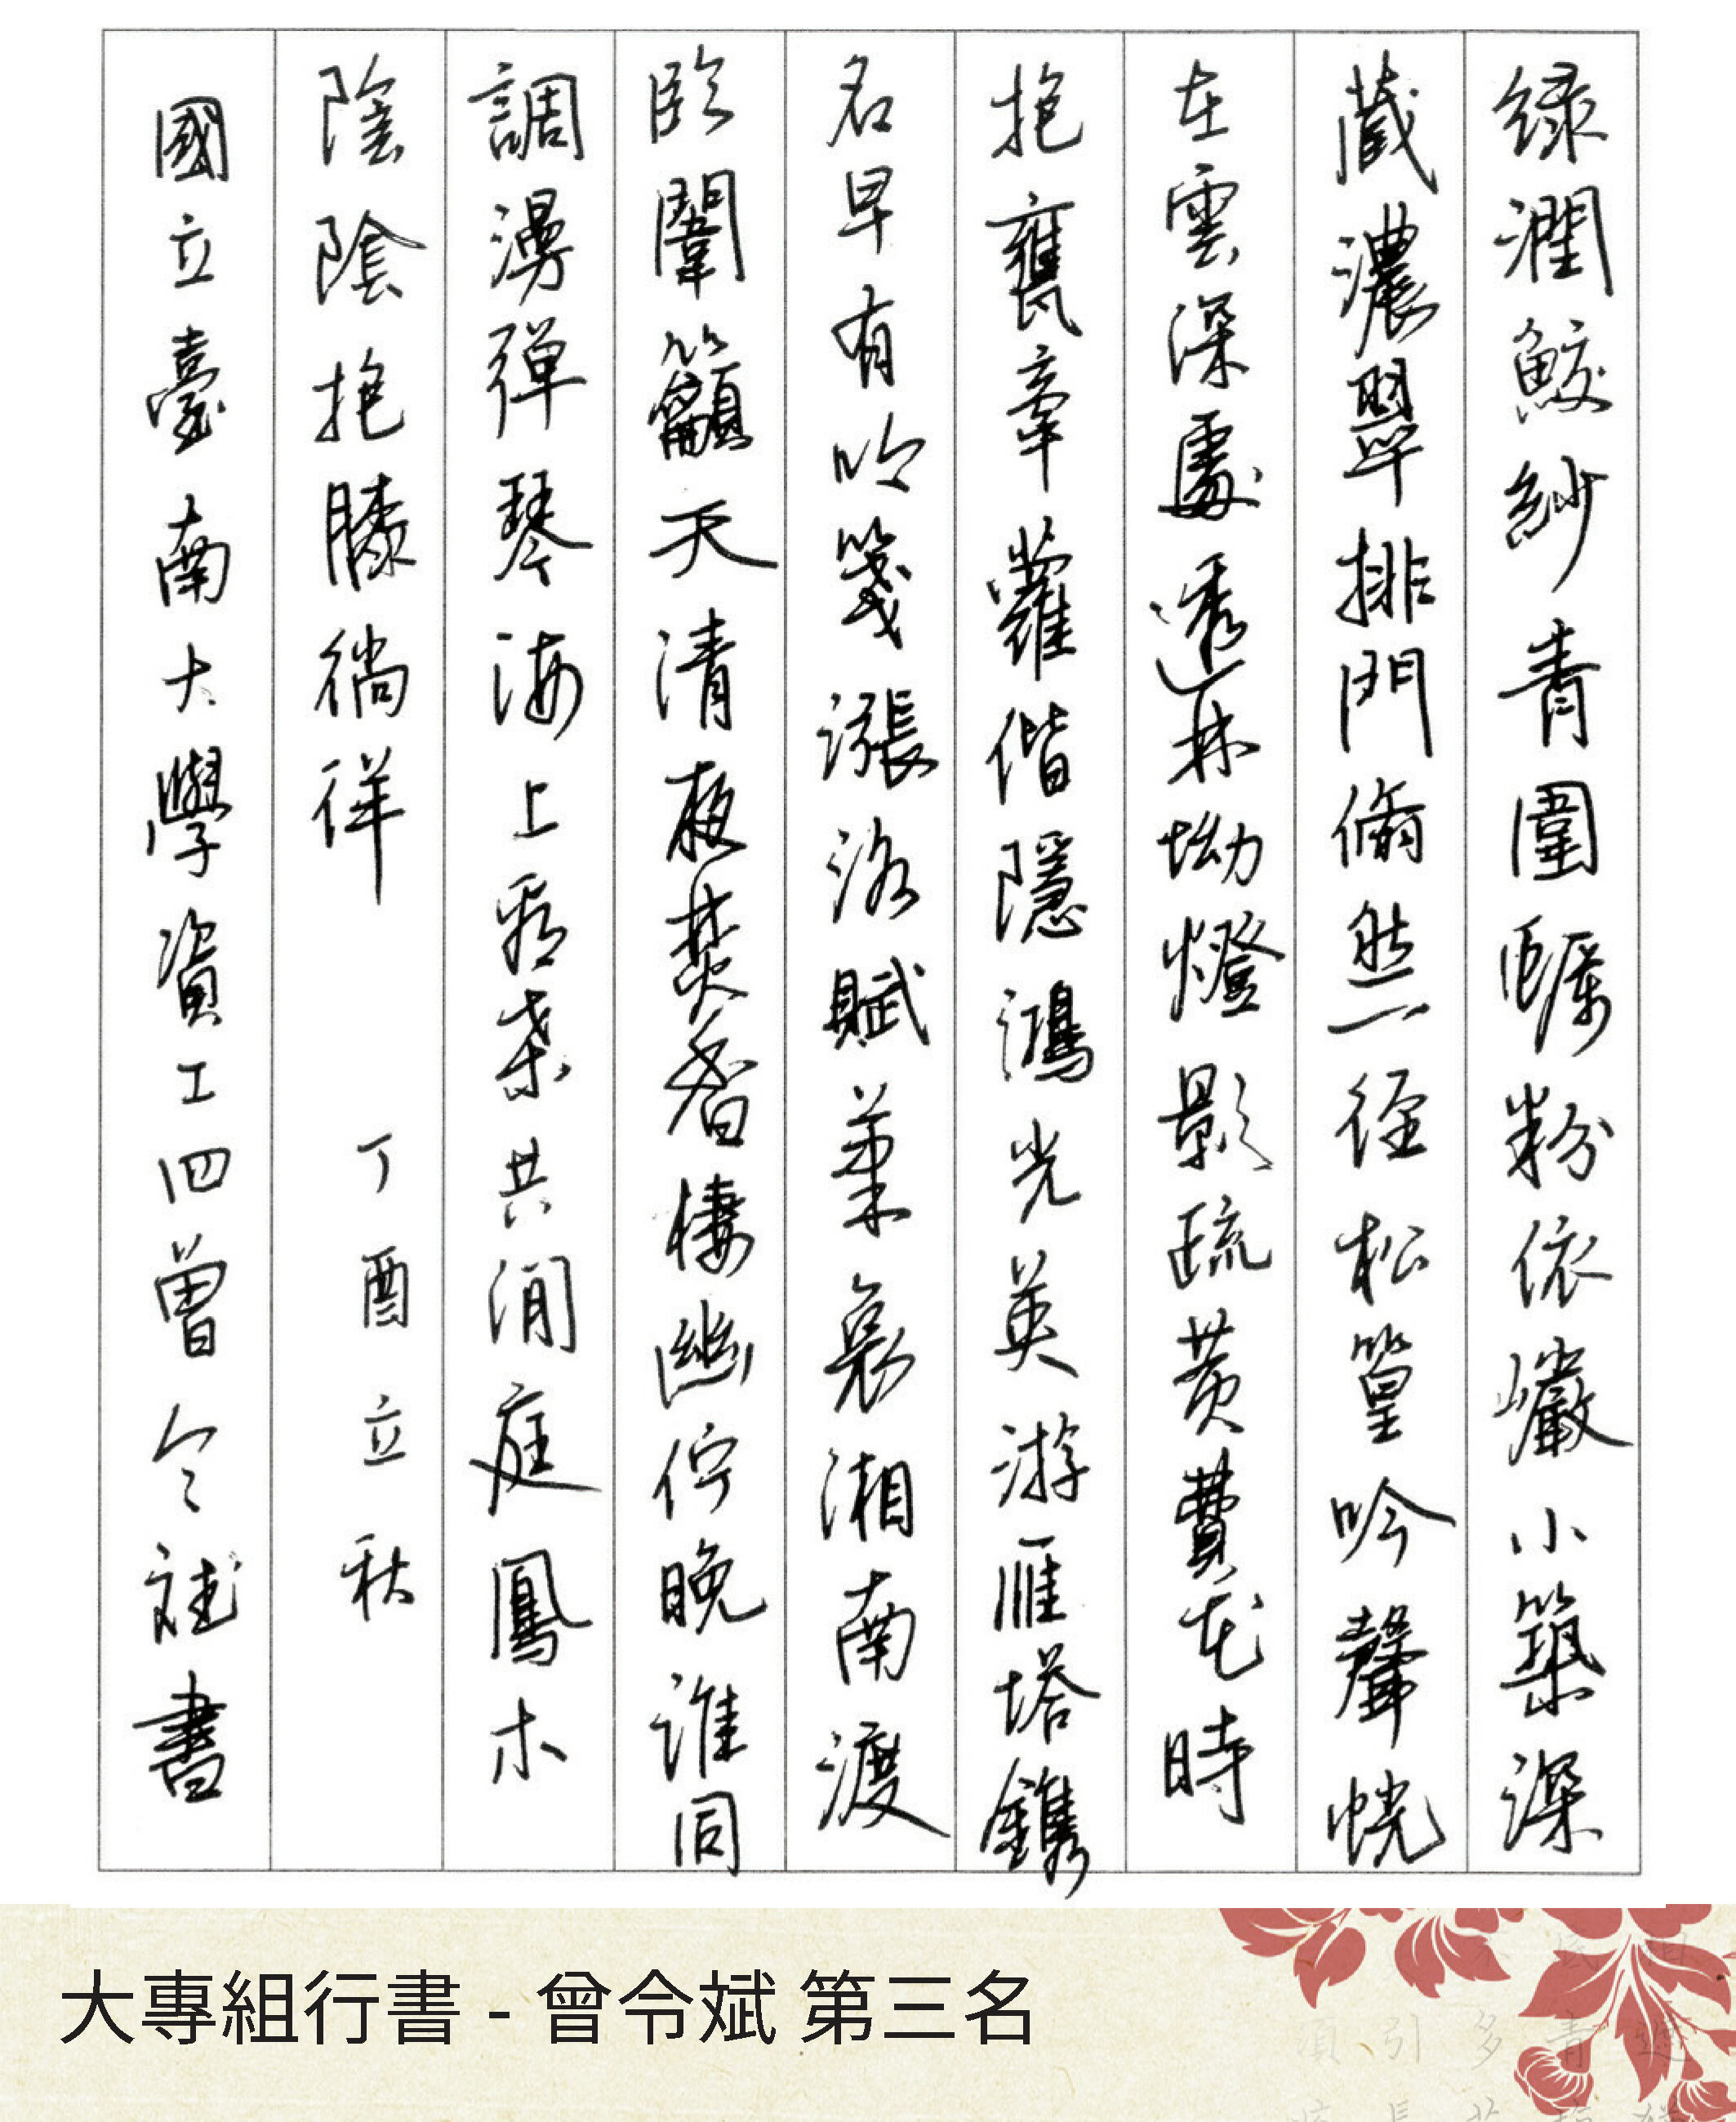 綠潤鮫紗青圍蠣粉依巖小築深
藏濃翠排門翛然一徑松篁吟聲恍
在雲深處透林坳燈影疏黃費尤時
抱甕牽蘿偕隱鴻光英游雁塔鐫
名早有吟箋漲洛賦筆裊湘南渡
臨闈籲天清夜焚香棲幽佇晚誰同
調湯彈琴海上看棊共澗庭鳳木
陰陰抱膝徜徉 丁酉立秋
國立臺南大學資工四曾令斌書
大專組行書 - 曾令斌 第三名